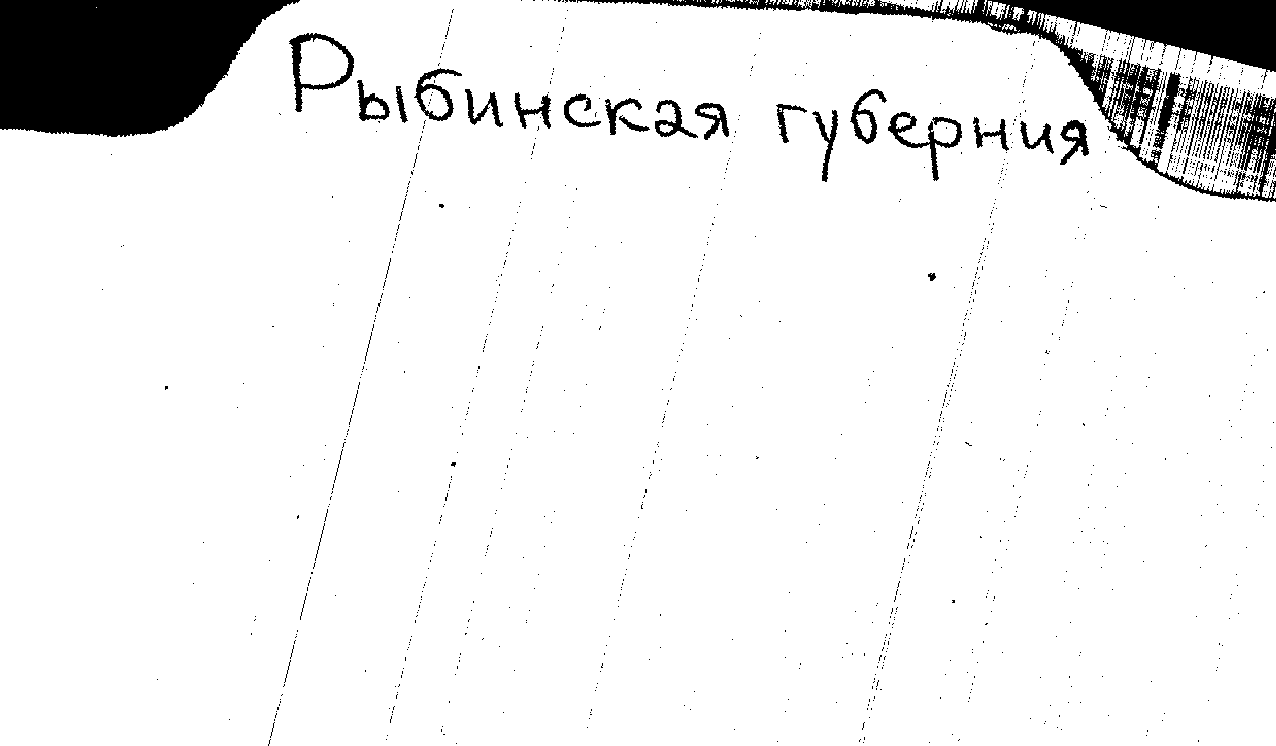 Рыбинская губерния